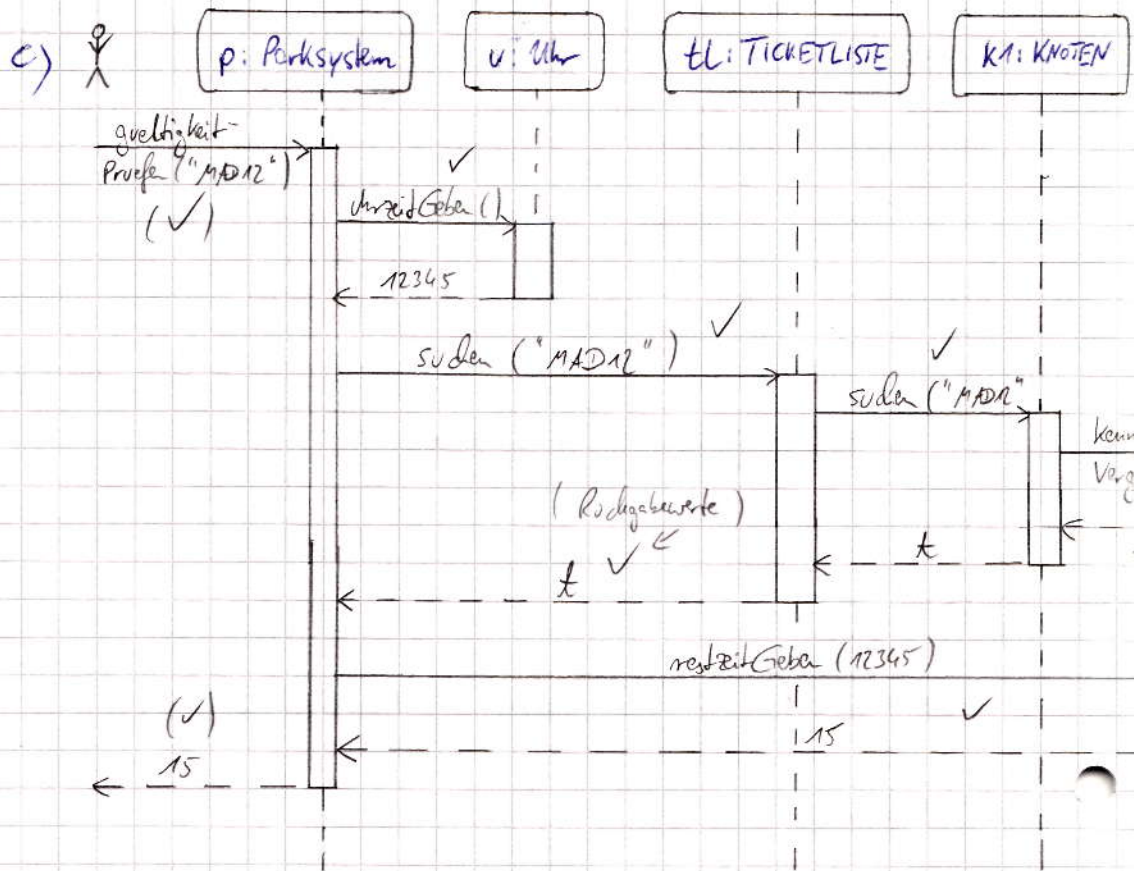 c)
p: Parksystem
u: Uhr
tl: TICKETLISTE
K1: KNOTEN
gueltigkeit-
Pruefen ("MAD12")
(✓)
✓
uhrzeitGeben ()
12345
✓
suchen ("MAD12")
✓
suchen ("MAD12"
kenn
Verg
(Rückgabewerte)
✓
t
t
restzeitGeben (12345)
(✓)
✓
15
15